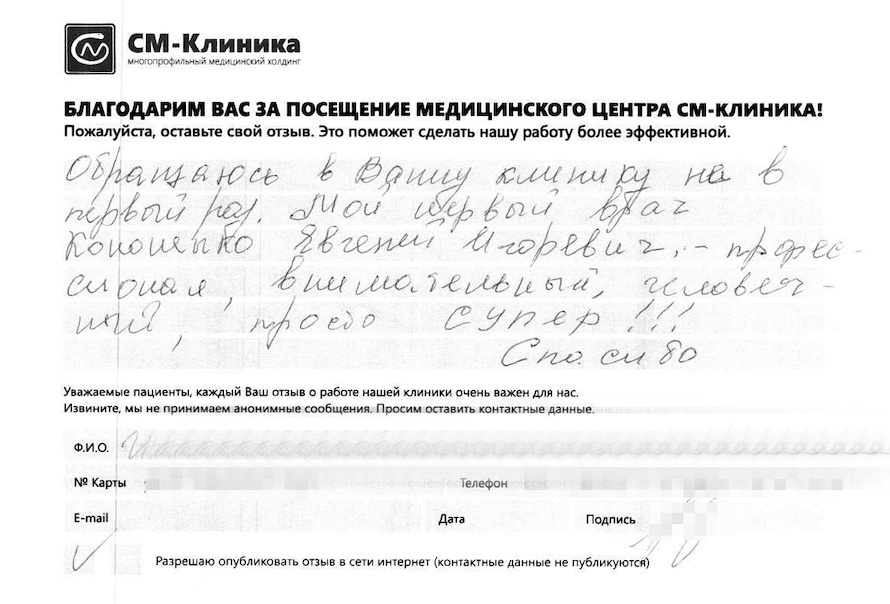 СМ-Клиника
многопрофильный медицинский холдинг
БЛАГОДАРИМ ВАС ЗА ПОСЕЩЕНИЕ МЕДИЦИНСКОГО ЦЕНТРА СМ-КЛИНИКА!
Пожалуйста, оставьте свой отзыв. Это поможет сделать нашу работу более эффективной.
Обращаюсь в Вашу клинику не в
первый раз. Мой первый врач
Евгений Игоревич. - професс-
сионал, внимательный, человеч-
ный, просто супер!!!
Спасибо
Уважаемые пациенты, каждый Ваш отзыв о работе нашей клиники очень важен для нас.
Извините, мы не принимаем анонимные сообщения. Просим оставить контактные данные.
Ф.И.О.
№ Карты Телефон
E-mail Дата Подпись
Разрешаю опубликовать отзыв в сети интернет (контактные данные не публикуются)